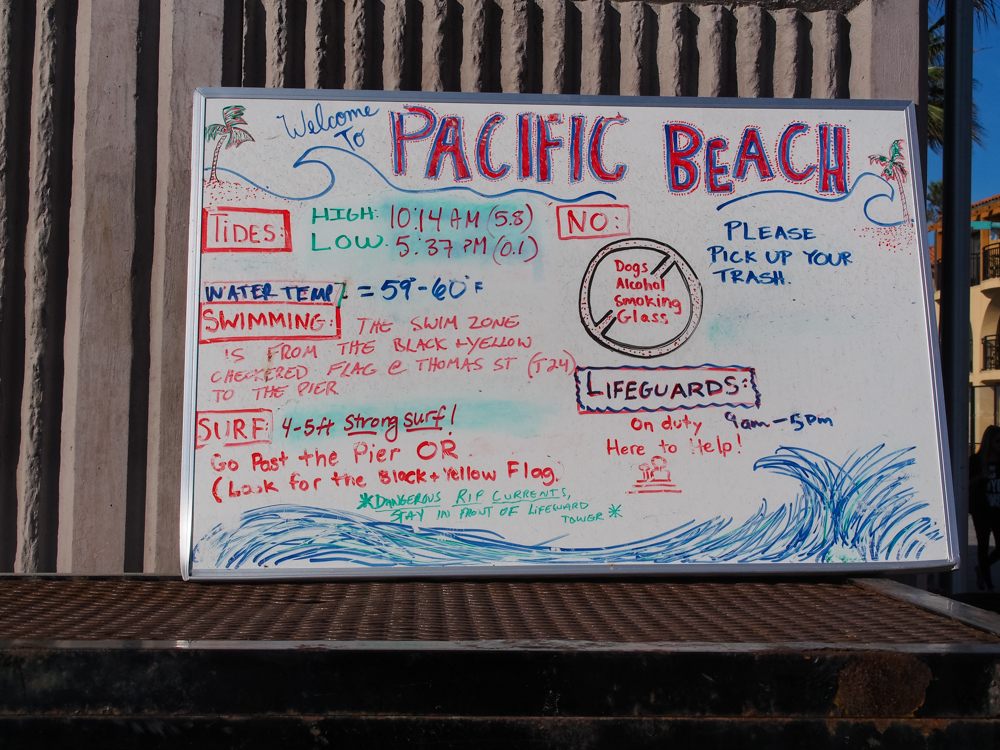 Welcome
To
PACIFIC BEACH
TIDES:
HIGH: 10:14 AM (5.8)
LOW: 5:37 PM (0.1)
WATER TEMP. = 59-60°F
SWIMMING: THE SWIM ZONE
IS FROM THE BLACK + YELLOW
CHECKERED FLAG @ THOMAS ST (T24)
TO THE PIER
SURF: 4-5ft Strong surf!
Go Past the Pier OR
(Look for the Black + Yellow Flag.
*DANGEROUS RIP CURRENTS,
STAY IN FRONT OF LIFEWARD
TOWER*
NO:
Dogs
Alcohol
Smoking
Glass
PLEASE
PICK UP YOUR
TRASH.
LIFEGUARDS:
On duty 9am-5pm
Here to Help!